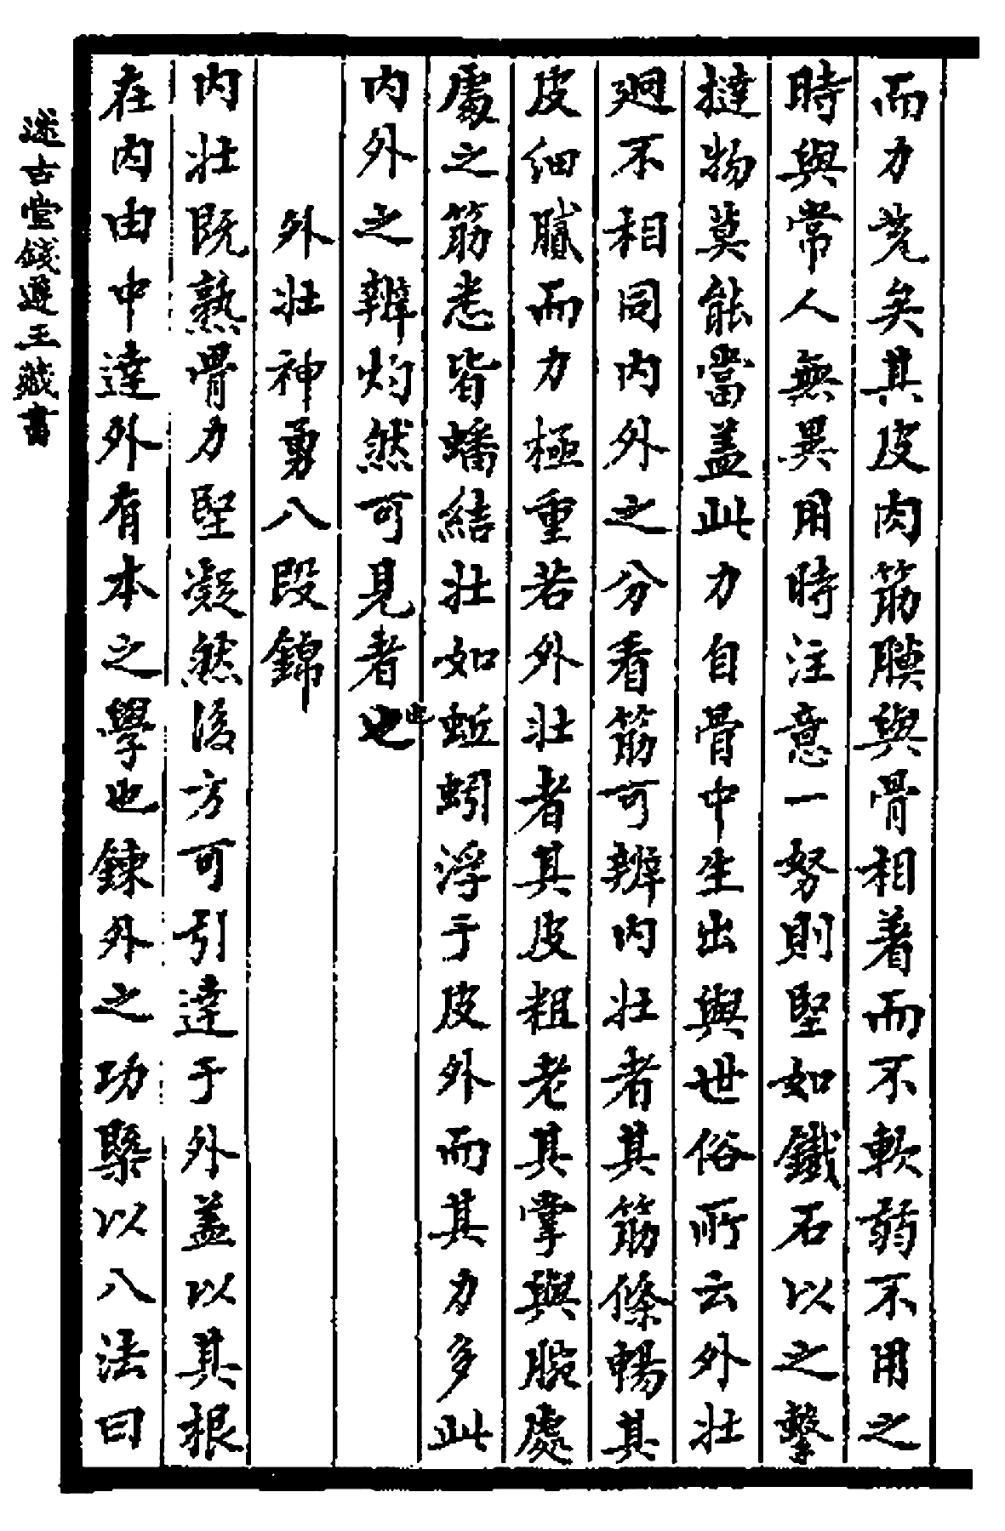 而力充矣其皮肉筋膜與骨相着而不軟弱不用之
時與常人無異用時注意一努則堅如鐵石以之擊
撻物莫能當盖此力自骨中生出與世俗所云外壯
迥不相同内外之分看筋可辨内壯者其筋條暢其
皮細膩而力極重若外壯者其皮粗老其掌與腕處
處之筋悉皆蟠結壯如蚯蚓浮于皮外而其力多此
内外之辨灼然可見者也
外壯神勇八段錦
内壯既熟骨力堅凝然後方可引達于外盖以其根
在内由中達外有本之學也鍊外之功槩以八法曰
述古堂錢遵王藏書